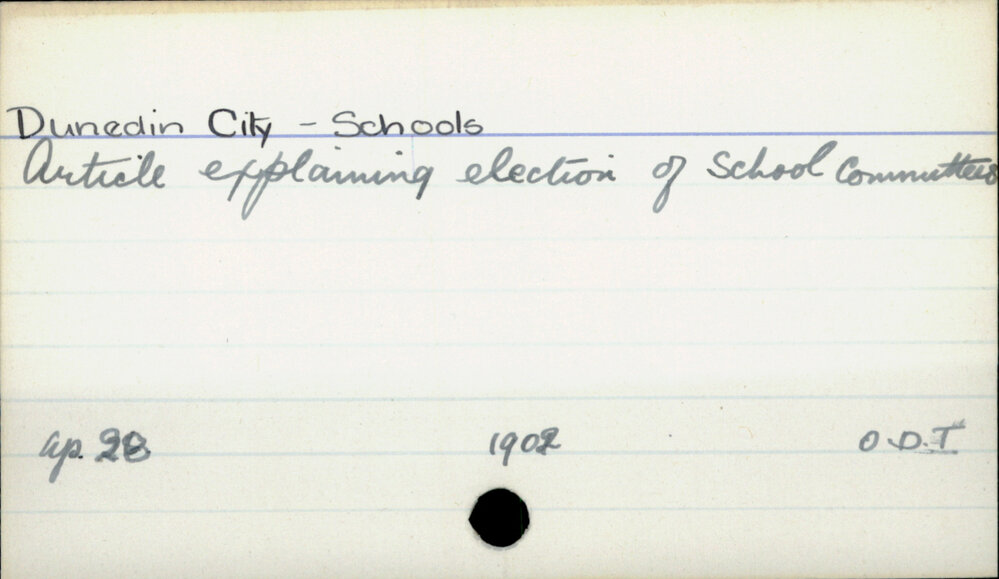 Dunedin City - Schools
Article explaining election of School Committees
ap. 28 1902 O.D.T